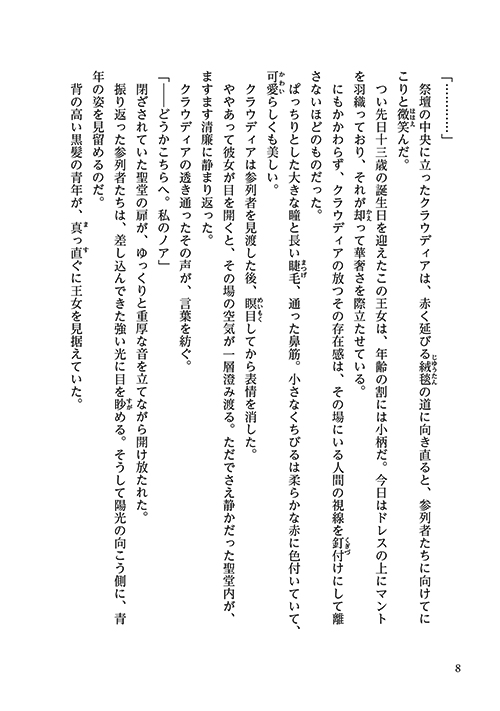 「…………」
祭壇の中央に立ったクラウディアは、赤く延びる絨毯の道に向き直ると、参列者たちに向けてに
こりと微笑んだ。
つい先日十三歳の誕生日を迎えたこの王女は、年齢の割には小柄だ。今日はドレスの上にマント
を羽織っており、それが却って華奢さを際立たせている。
にもかかわらず、クラウディアの放つその存在感は、その場にいる人間の視線を釘付けにして離
さないほどのものだった。
ぱっちりとした大きな瞳と長い睫毛、通った鼻筋。小さなくちびるは柔らかな赤に色付いていて、
可愛らしくも美しい。
クラウディアは参列者を見渡した後、瞑目してから表情を消した。
ややあって彼女が目を開くと、その場の空気が一層澄み渡る。ただでさえ静かだった聖堂内が、
ますます清廉に静まり返った。
クラウディアの透き通ったその声が、言葉を紡ぐ。
「――どうかこちらへ。私のノア」
閉ざされていた聖堂の扉が、ゆっくりと重厚な音を立てながら開け放たれた。
振り返った参列者たちは、差し込んできた強い光に目を眇める。そうして陽光の向こう側に、青
年の姿を見留めるのだ。
背の高い黒髪の青年が、真っ直ぐに王女を見据えていた。
8